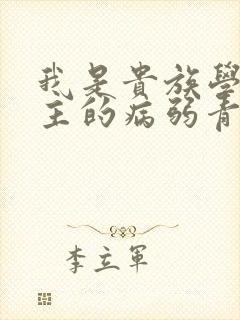 我是貴族學
主的病弱青
李立軍